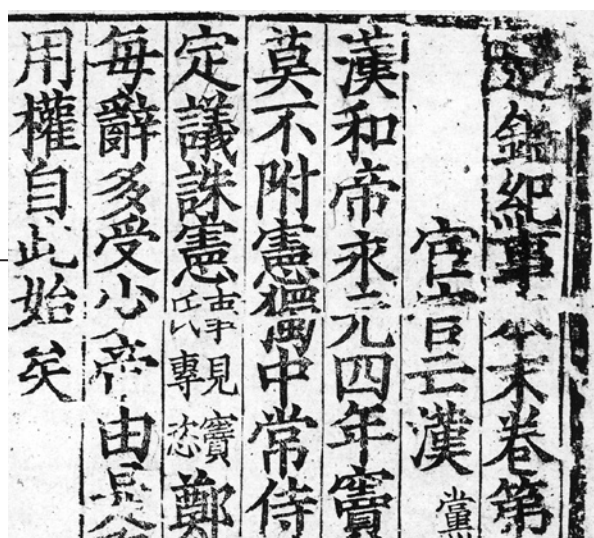 通鑑紀事本末卷第
宦官亡漢黨
漢和帝永元四年竇
莫不附憲獨中常侍
定議誅憲事見竇氏專恣鄭
每辭多受少帝由是
用權自此始矣